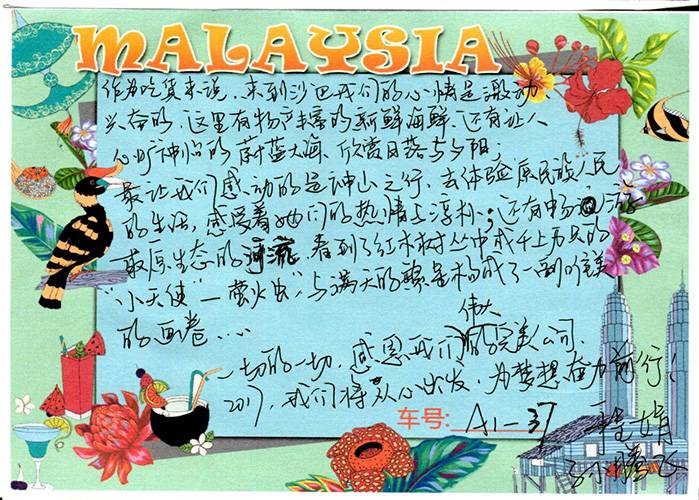 MALAYSIA
作为吃货来说，来到沙巴我们的心情是激动、
兴奋的，这里有物产丰富的新鲜海鲜、还有让人
心旷神怡的蔚蓝大海、欣赏日落与夕阳；
最让我们感动的是神山之行，去体验原民族人民
的生活，感受着她们的热情与淳朴；还有畅游
最原生态的河流，看到了红木树丛中成千上万只的
“小天使”—萤火虫，与满天的繁星构成了一副唯美
的画卷……
一切的一切，感恩我们伟大的完美公司，
2017，我们将从心出发，为梦想奋力前行！
车号: A1-37
娟
孙腾飞